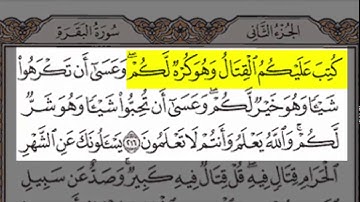 الجزء الثاني سورة البقرة
كُتِبَ عَلَيْكُمُ الْقِتَالُ وَهُوَ كُرْهٌ لَّكُمْ ۖ وَعَسَىٰ أَن تَكْرَهُوا
شَيْئًا وَهُوَ خَيْرٌ لَّكُمْ ۖ وَعَسَىٰ أَن تُحِبُّوا شَيْئًا وَهُوَ شَرٌّ
لَّكُمْ ۗ وَاللَّهُ يَعْلَمُ وَأَنتُمْ لَا تَعْلَمُونَ ٢١٦ يَسْأَلُونَكَ عَنِ الشَّهْرِ
الْحَرَامِ قِتَالٍ فِيهِ ۖ قُلْ قِتَالٌ فِيهِ كَبِيرٌ ۖ وَصَدٌّ عَن سَبِيلِ